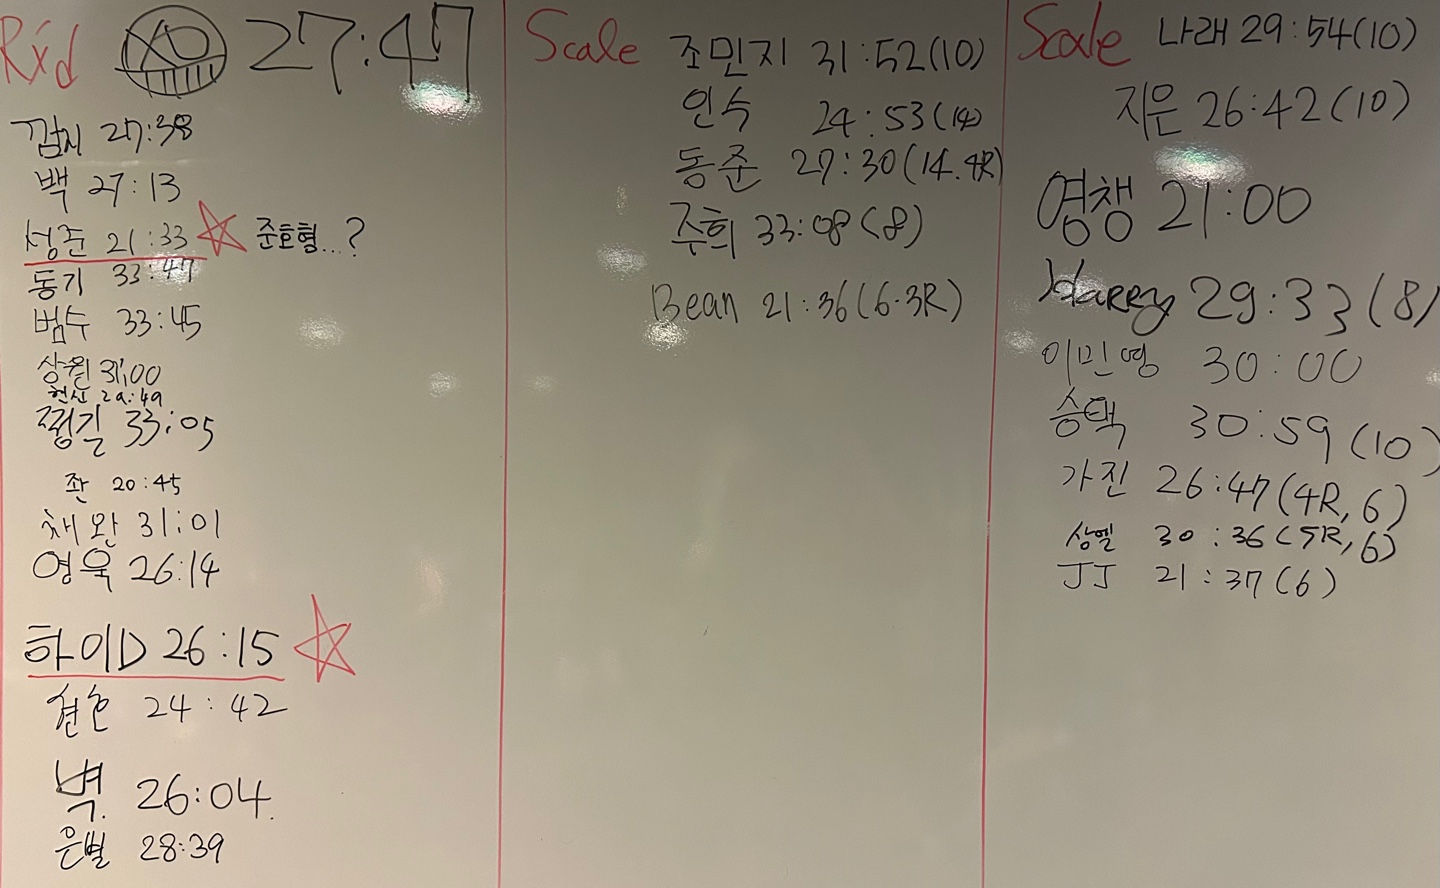 Rxd XO 27:47
깜시 27:38
백 27:13
성준 21:33 준호형...?
동기 33:47
범수 33:45
상월 31:00
현산 29:49
찡길 33:05
좐 20:45
채완 31:01
영욱 26:14
하이D 26:15
24:42
벽. 26:04
은별 28:39
Scale 조민지 31:52(10)
인수 24:53(14)
동준 27:30(14.4R)
주희 33:08(8)
Bean 21:36(6.3R)
Scale 나래 29:54(10)
지은 26:42(10)
영챙 21:00
Harry 29:33(8)
이민영 30:00
승택 30:59(10)
가진 26:47(4R,6)
상엘 30:36(5R,6)
JJ 21:37(6)